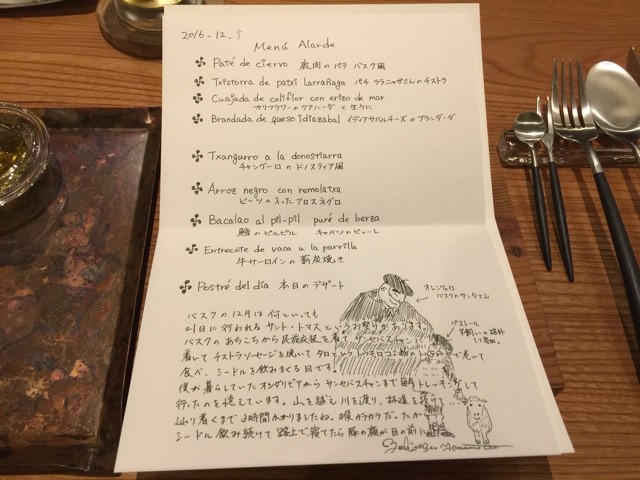 2016.12.5
Menú Alarde
Paté de ciervo 鹿肉のパテ バスク風
Txistorra de patxi Larrañaga パチ ララニャガさんのチストラ
Cuajada de coliflor con erizo de mar
カリフラワーのクアハーダ と生うに
Brandada de queso idiazabal イディアサバルチーズのブランダーダ
Txangurro a la donostiarra
チャングーロのドノスティア風
Arroz negro con remolatxa
ビーツの入ったアロスネグロ
Bacalao al pil-pil puré de berza
鱈のピルピル キャベツのピューレ
Entrecote de vaca a la parrilla
牛サーロインの薪炭焼き
Postré del día 本日のデザート
オレンツェロ
バスクのサンタさん
バスクの12月は何といっても
21日に行われるサント・トマスというお祭りがあります。
バスクのあちこちから民族衣装を着てサンセバスチャンに
着してチストラソーセージを焼いてタロというトウモロコシ粉のトルティーヤで巻いて
食べ、シードルを飲みまくる日です。
僕が暮らしていたオンダリビアからサンセバスチャンまで毎年トレーキングして
行ったのを憶えています。山を越え川を渡り、林道を抜けて
辿り着くまで8時間かかりましたね。喉がカラカラだったから
シードル飲み続けて路上で寝てたら豚の顔が目の前に